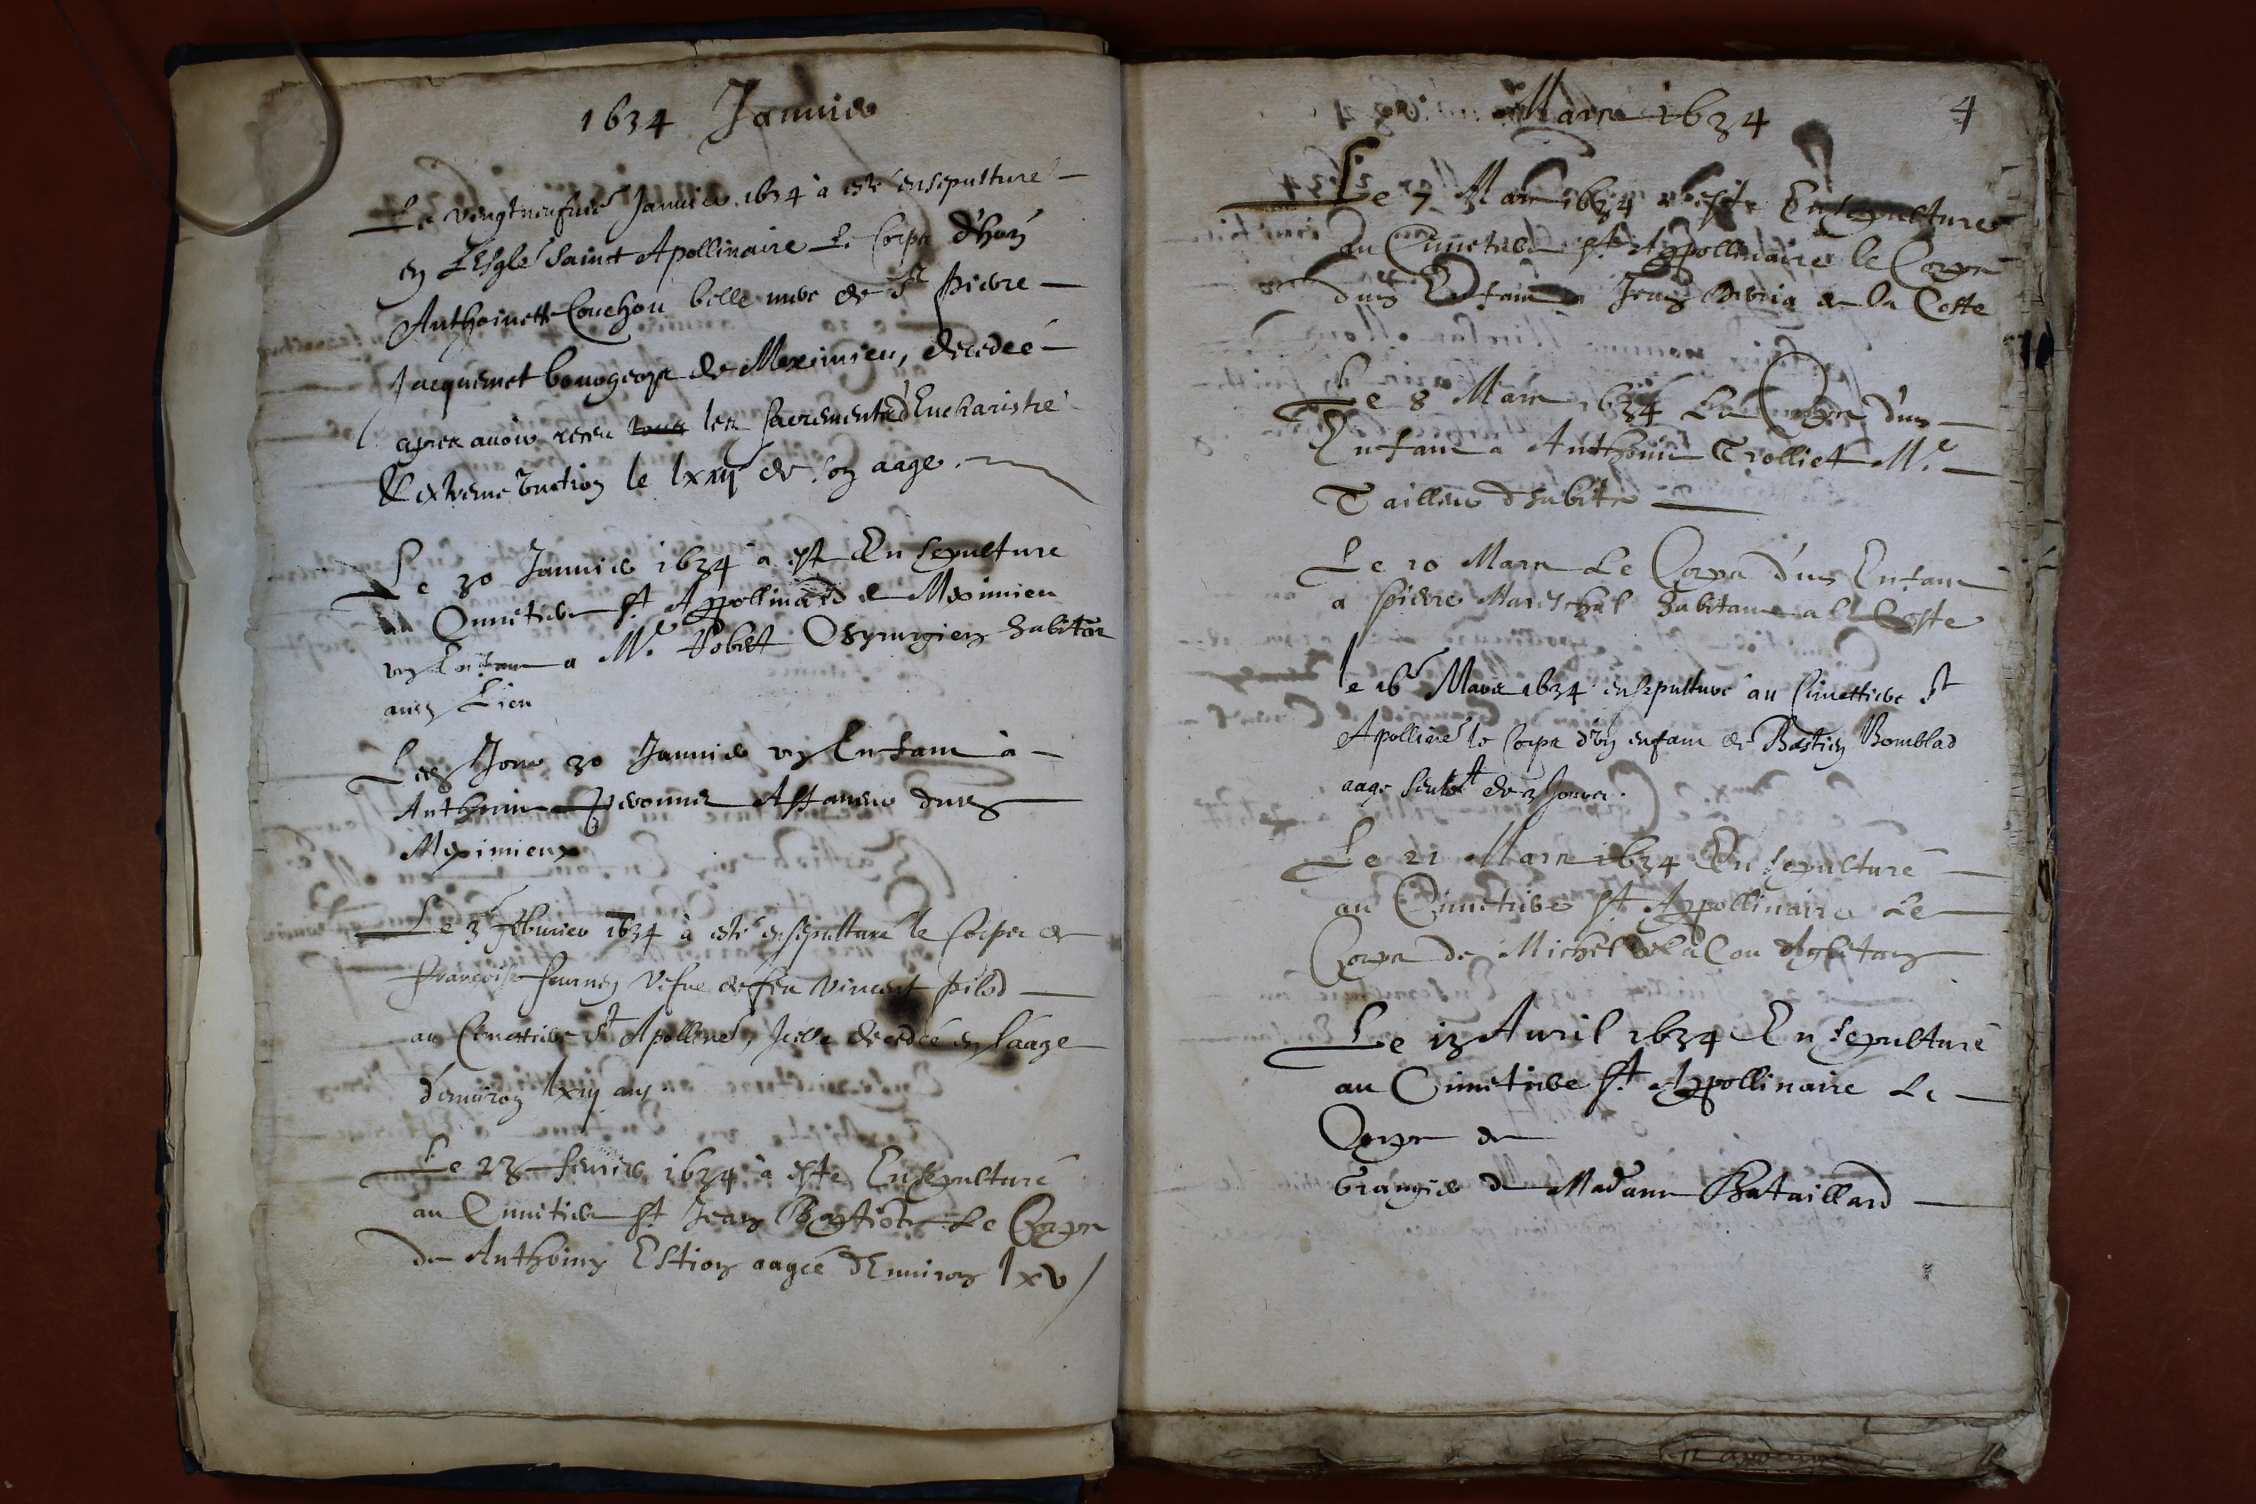 1634 Januier
Le vengtneufme Januier 1634 à esté ensepulturé
en L'Esglé Saint Apollinaire Le Corps d'hon
Anthoinette Couchou belle mere de Sr Pierre
Jacquemet bourgeois de Meximieu, decedeé
apres auoir receu les sacrements d'Eucharistie
& extreme Unction le lxxij de son aage.
Le 30 Januier 1634 a est Ensepulturé
Cimetiere St Appollinard de Meximieu
un Enfant a Me Pobet Chyrurgien habitat
aud Lieu
Led Jour 30 Januier un Enfant à
Anthoine dud
Meximieux
Le 3e feburier 1634 à esté ensepulturé le Corps de
françoise fournej vefue de feu Vincent Pilod
au Cimettiere St Apolliné, Icelle decedeé en l'aage
d'enuiron lxij ans
Le 23 feurier 1634 à este Ensepulturé
au Cimetiere St Jean Baptiste Le Corps
de Anthoine Estion aagée d'Enuiron lxv
Mars 1634
4
Le 7 Mars 1634 a este Ensepulture
au Cimetiere St Appollinaire le Corps
dun Enfant a Jean de la Coste
Le 8 Mars 1634 Le Corps d'un
Enfant a Anthoine Trolliet Me
Tailleur d'habits
Le 10 Mars Le Corps d'un Enfant
a Pierre Mareschal habitant a la Coste
le 16e Mars 1634 ensepulturé au Cimettiere St
Apolliné le Corps d'un enfant de Bastien Bomblad
aage seulet de 2 Jours.
Le 21 Mars 1634 Ensepulturé
au Cimetiere St Appollinaire Le
Corps de Michel
Le 13 Auril 1634 Ensepulturé
au Cimetiere St Appollinaire Le
Corps de
Grangier de Madame Bataillard